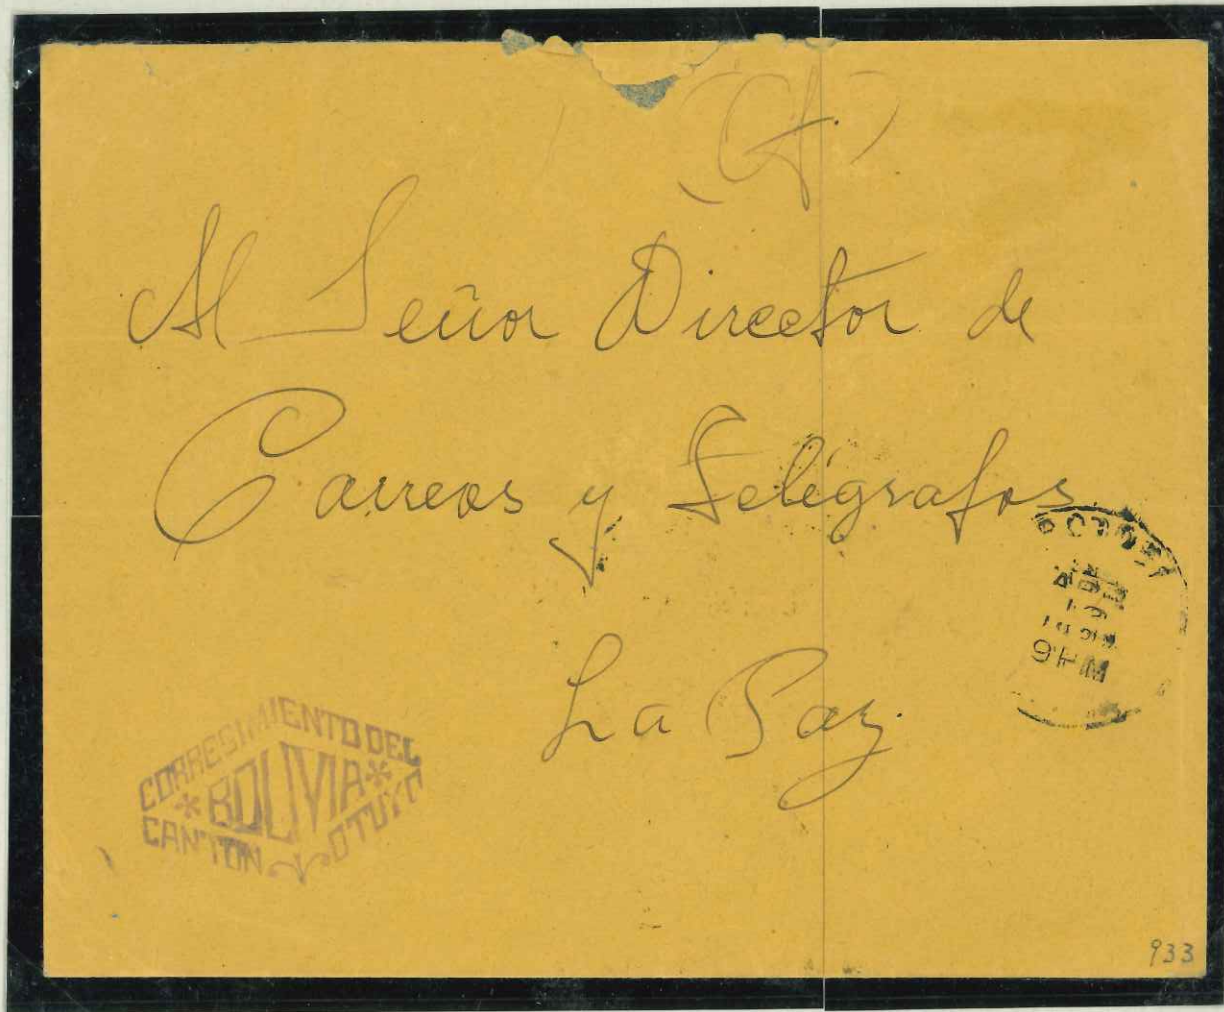 (A)
Al Señor Director de
Correos y Telégrafos
La Paz.
POTOSI
9 - AM
CORREGIMIENTO DEL
* BOLIVIA *
CANTON OTUYO
933